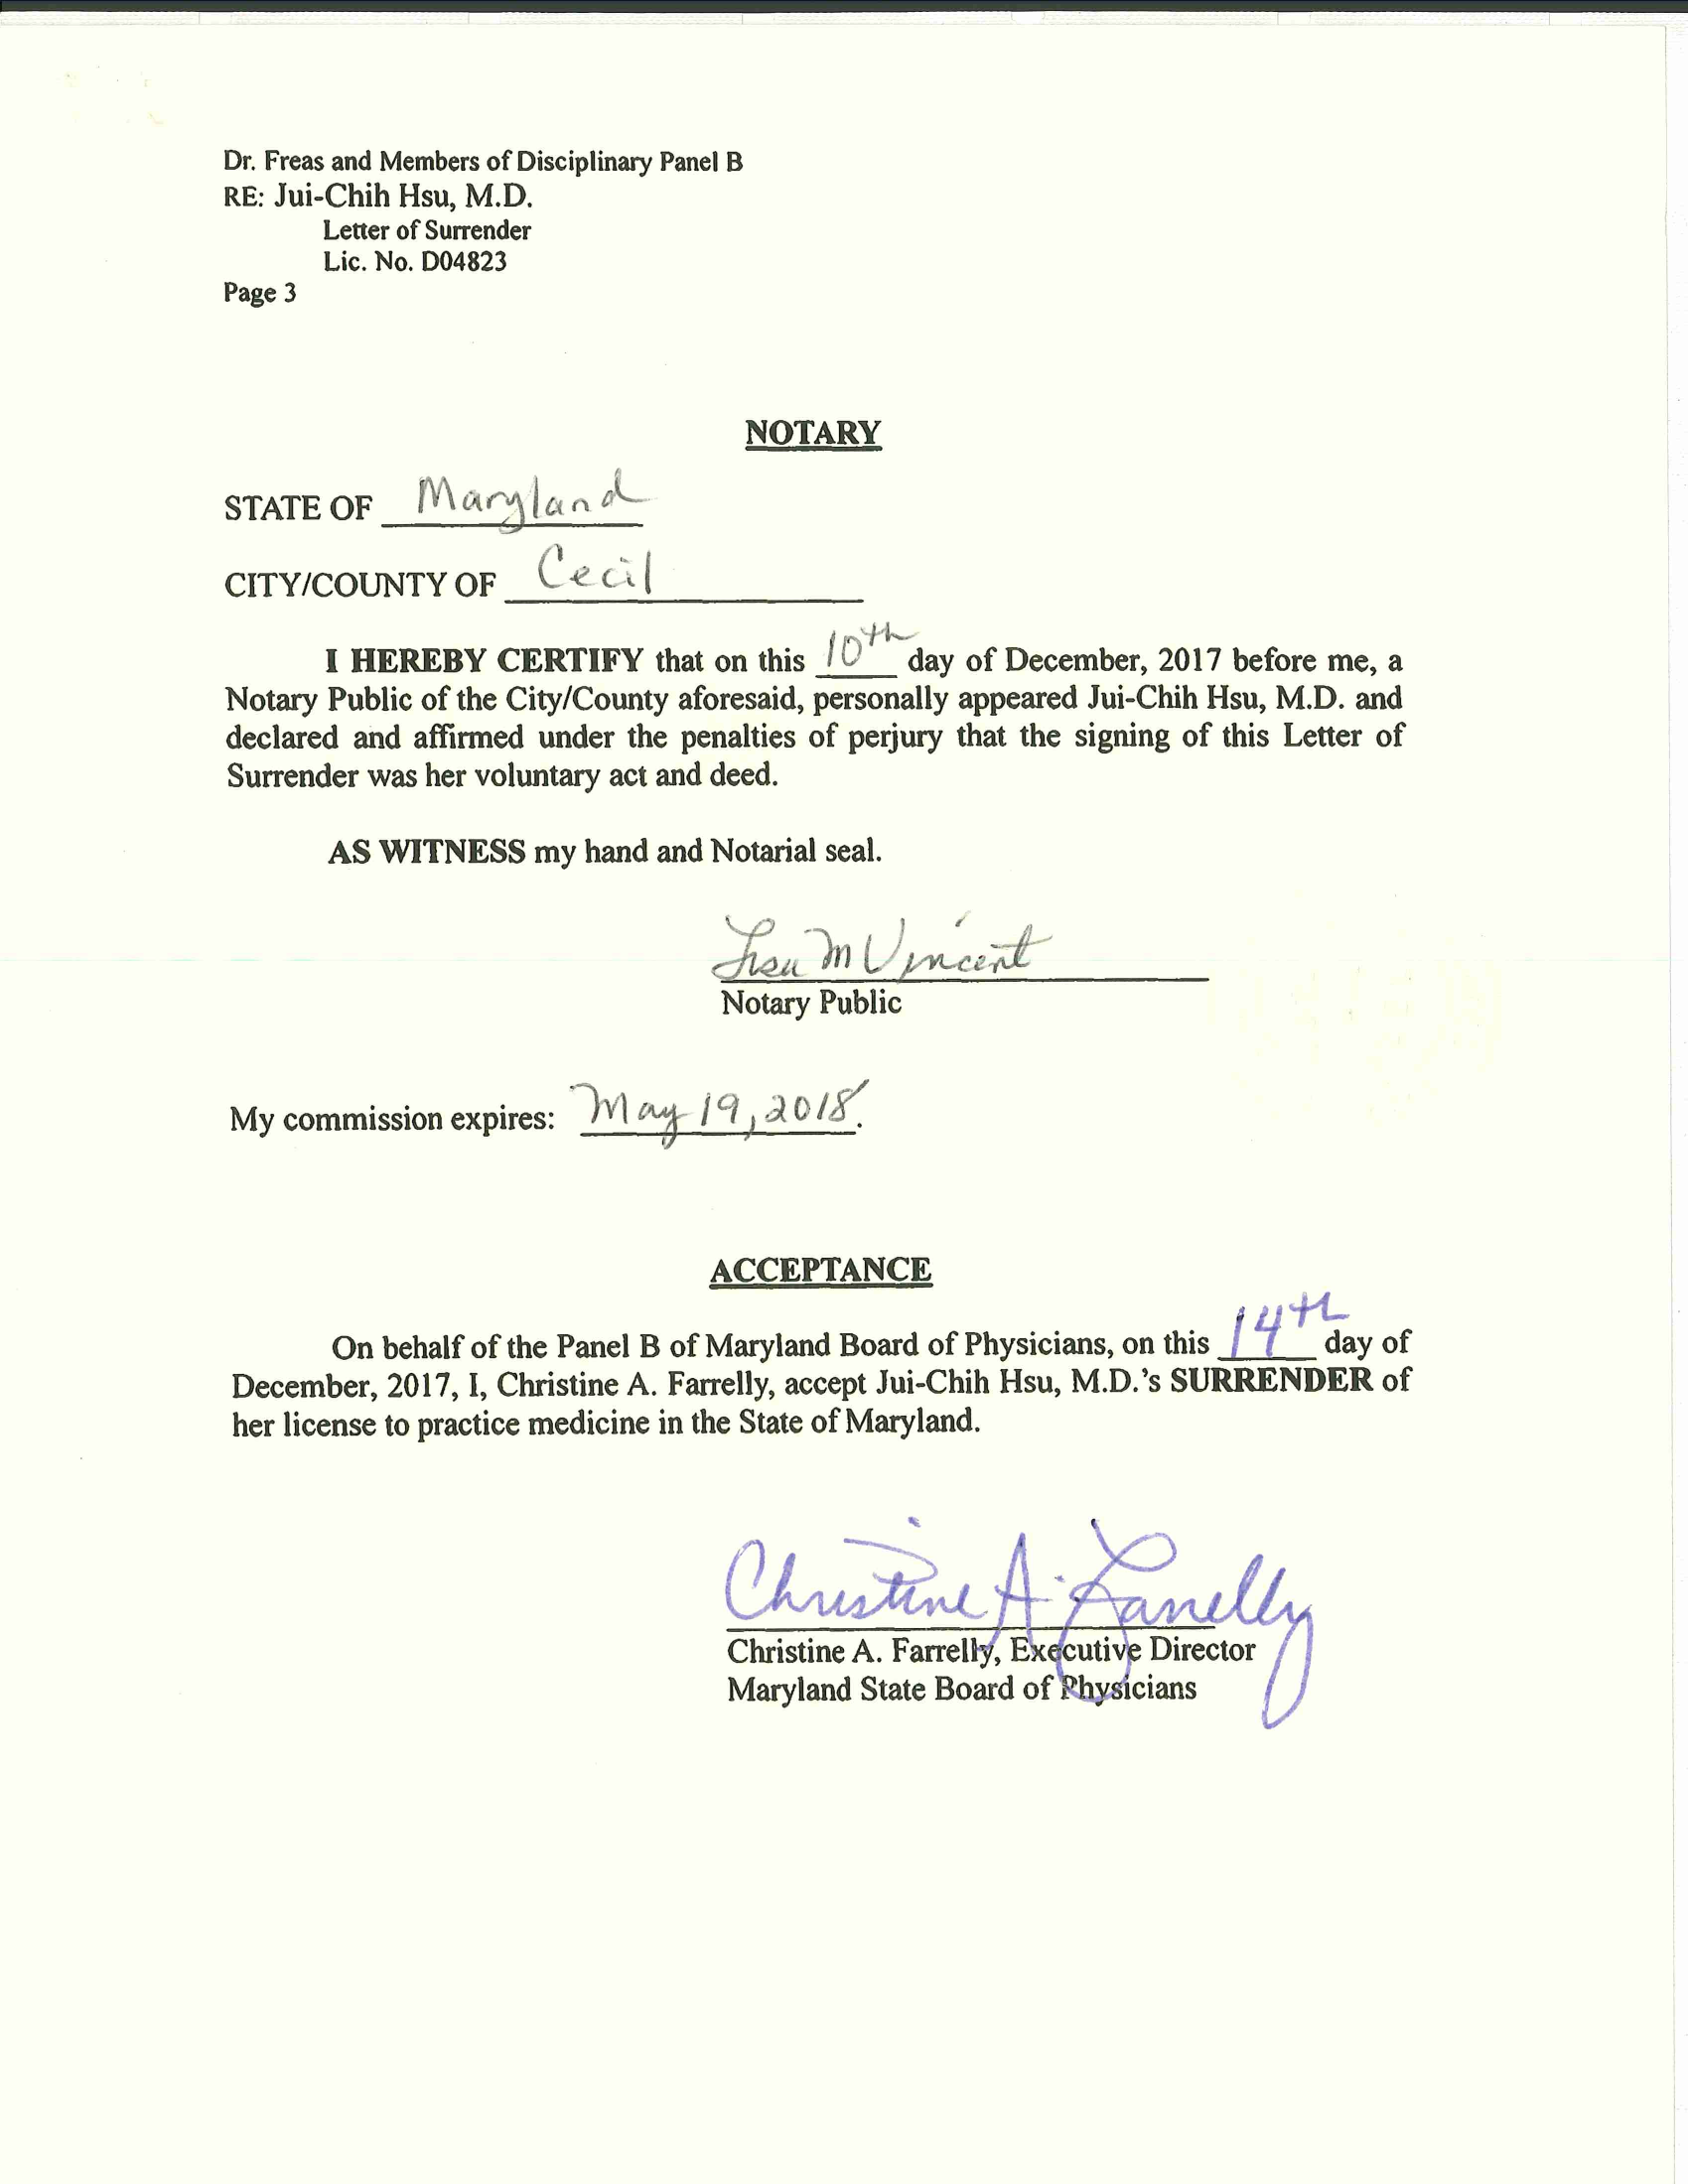 Dr. Freas and Members of Disciplinary Panel B
RE: Jui-Chih Hsu, M.D.
Letter of Surrender
Lic. No. D04823
Page 3
NOTARY
STATE OF Maryland
CITY/COUNTY OF Cecil
I HEREBY CERTIFY that on this 10th day of December, 2017 before me, a
Notary Public of the City/County aforesaid, personally appeared Jui-Chih Hsu, M.D. and
declared and affirmed under the penalties of perjury that the signing of this Letter of
Surrender was her voluntary act and deed.
AS WITNESS my hand and Notarial seal.
Lisa M Vincent
Notary Public
My commission expires: May 19, 2018.
ACCEPTANCE
On behalf of the Panel B of Maryland Board of Physicians, on this 14th day of
December, 2017, I, Christine A. Farrelly, accept Jui-Chih Hsu, M.D.'s SURRENDER of
her license to practice medicine in the State of Maryland.
Christine A. Farrelly
Christine A. Farrelly, Executive Director
Maryland State Board of Physicians